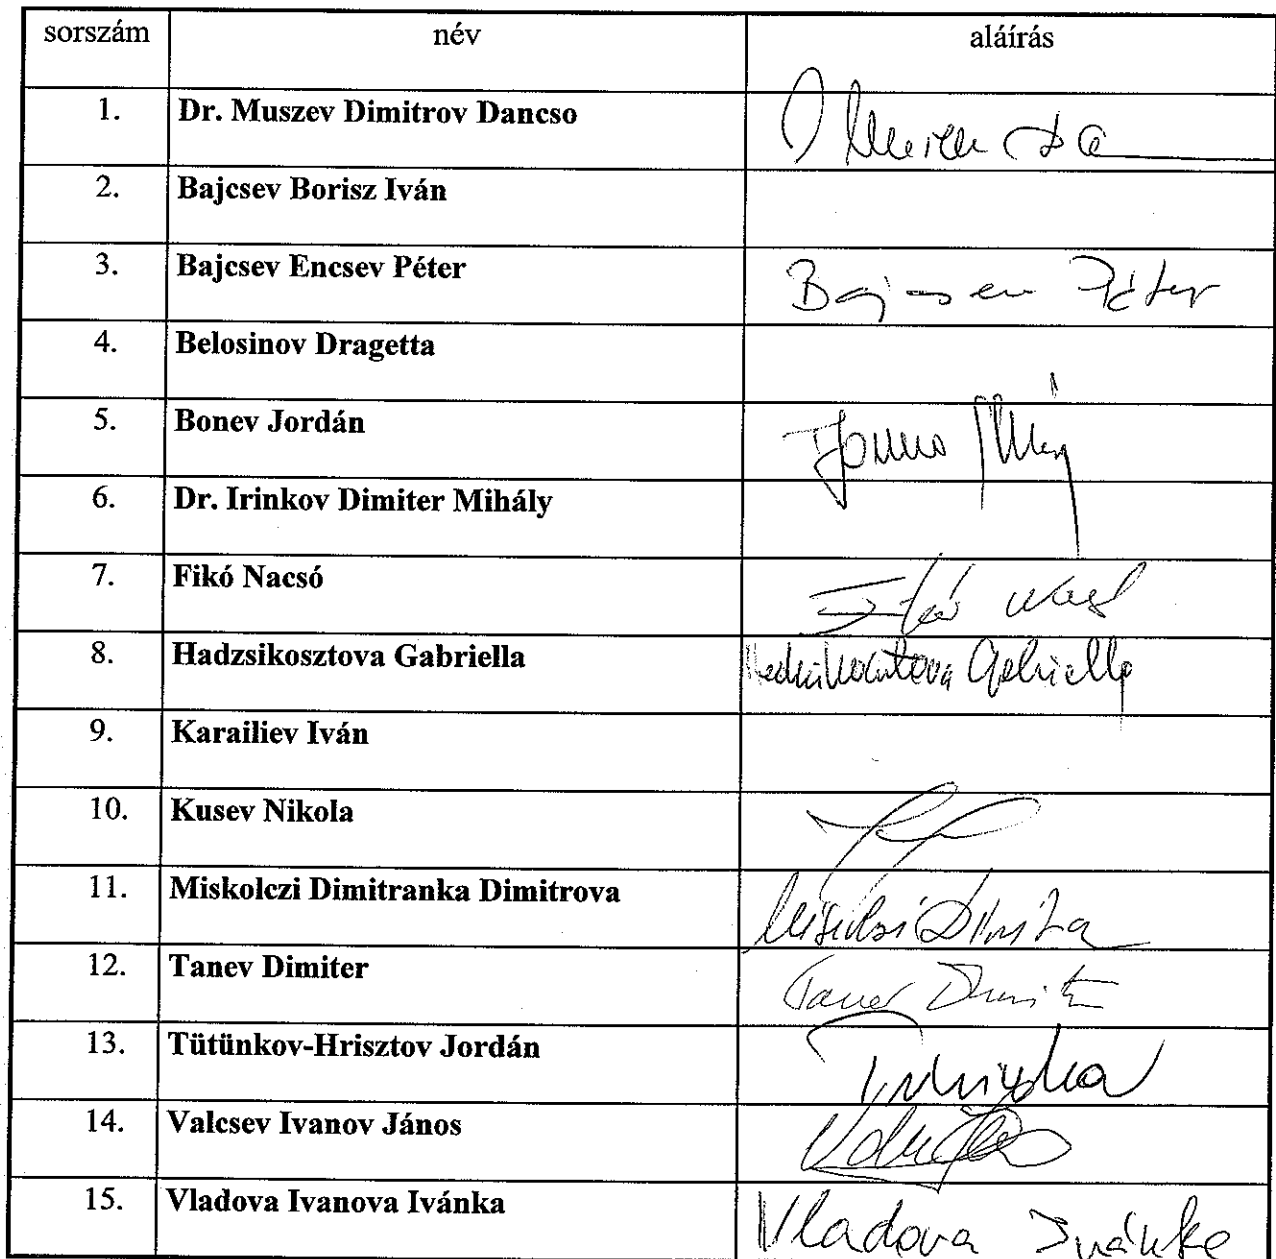 sorszám név aláírás
1. Dr. Muszev Dimitrov Dancso
2. Bajcsev Borisz Iván
3. Bajcsev Encsev Péter Bajcsev Péter
4. Belosinov Dragetta
5. Bonev Jordán
6. Dr. Irinkov Dimiter Mihály
7. Fikó Nacsó Fikó
8. Hadzsikosztova Gabriella Hadzsikosztova Gabriella
9. Karailiev Iván
10. Kusev Nikola
11. Miskolczi Dimitranka Dimitrova
12. Tanev Dimiter Tanev
13. Tütünkov-Hrisztov Jordán
14. Valcsev Ivanov János
15. Vladova Ivanova Ivánka Vladova Ivánka